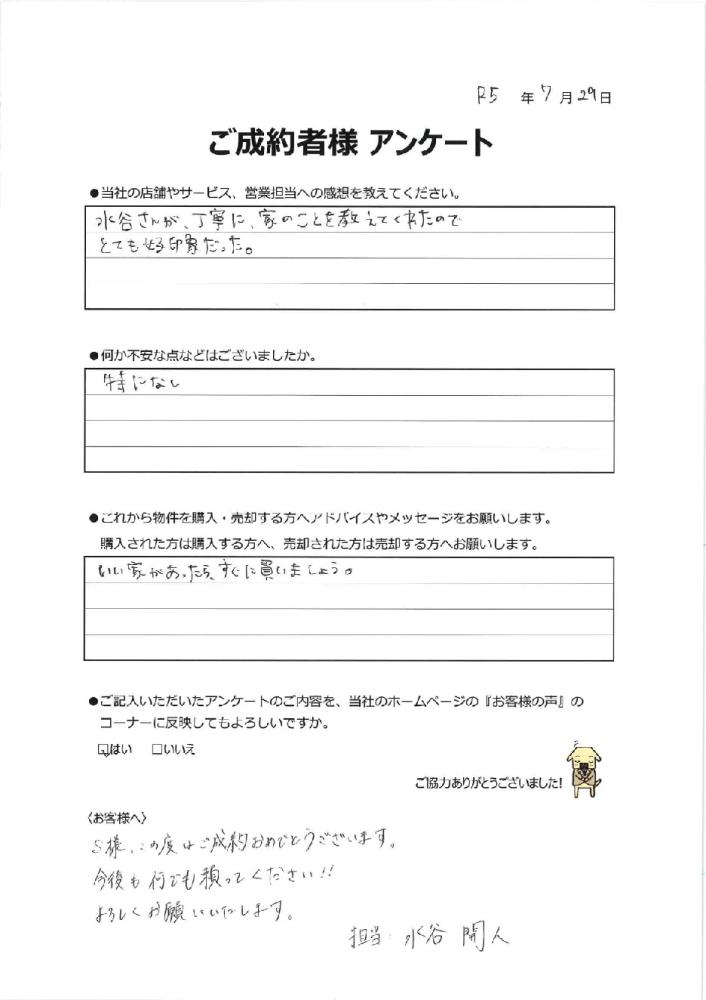 R5 年 7 月 29 日
ご成約者様 アンケート
●当社の店舗やサービス、営業担当への感想を教えてください。
水谷さんが、丁寧に、家のことを教えてくれたので
とても好印象だった。
●何か不安な点などはございましたか。
特になし
●これから物件を購入・売却する方へアドバイスやメッセージをお願いします。
購入された方は購入する方へ、売却された方は売却する方へお願いします。
いい家があったら、すぐに買いましょう。
●ご記入いただいたアンケートのご内容を、当社のホームページの『お客様の声』の
コーナーに反映してもよろしいですか。
☑はい □いいえ
ご協力ありがとうございました!
〈お客様へ〉
S様、この度はご成約おめでとうございます。
今後も何でも頼ってください!!
よろしくお願いいたします。
担当 水谷 開人